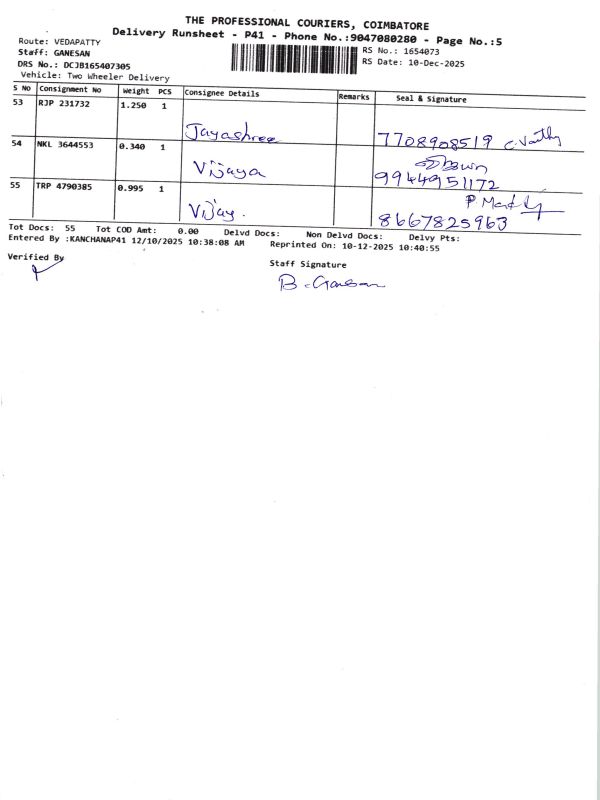 THE PROFESSIONAL COURIERS, COIMBATORE
Delivery Runsheet - P41 - Phone No.:9047080280 - Page No.:5
Route: VEDAPATTY
Staff: GANESAN
DRS No.: DCJB165407305
Vehicle: Two Wheeler Delivery
RS No.: 1654073
RS Date: 10-Dec-2025
S No Consignment No Weight PCS Consignee Details Remarks Seal & Signature
53 RJP 231732 1.250 1
Jayashree 7708908519
54 NKL 3644553 0.340 1
Vijaya 9944951172
55 TRP 4790385 0.995 1
Vijay. 8667825963
Tot Docs: 55 Tot COD Amt: 0.00 Delvd Docs: Non Delvd Docs: Delvy Pts:
Entered By :KANCHANAP41 12/10/2025 10:38:08 AM Reprinted On: 10-12-2025 10:40:55
Verified By
Staff Signature
B. Ganesan